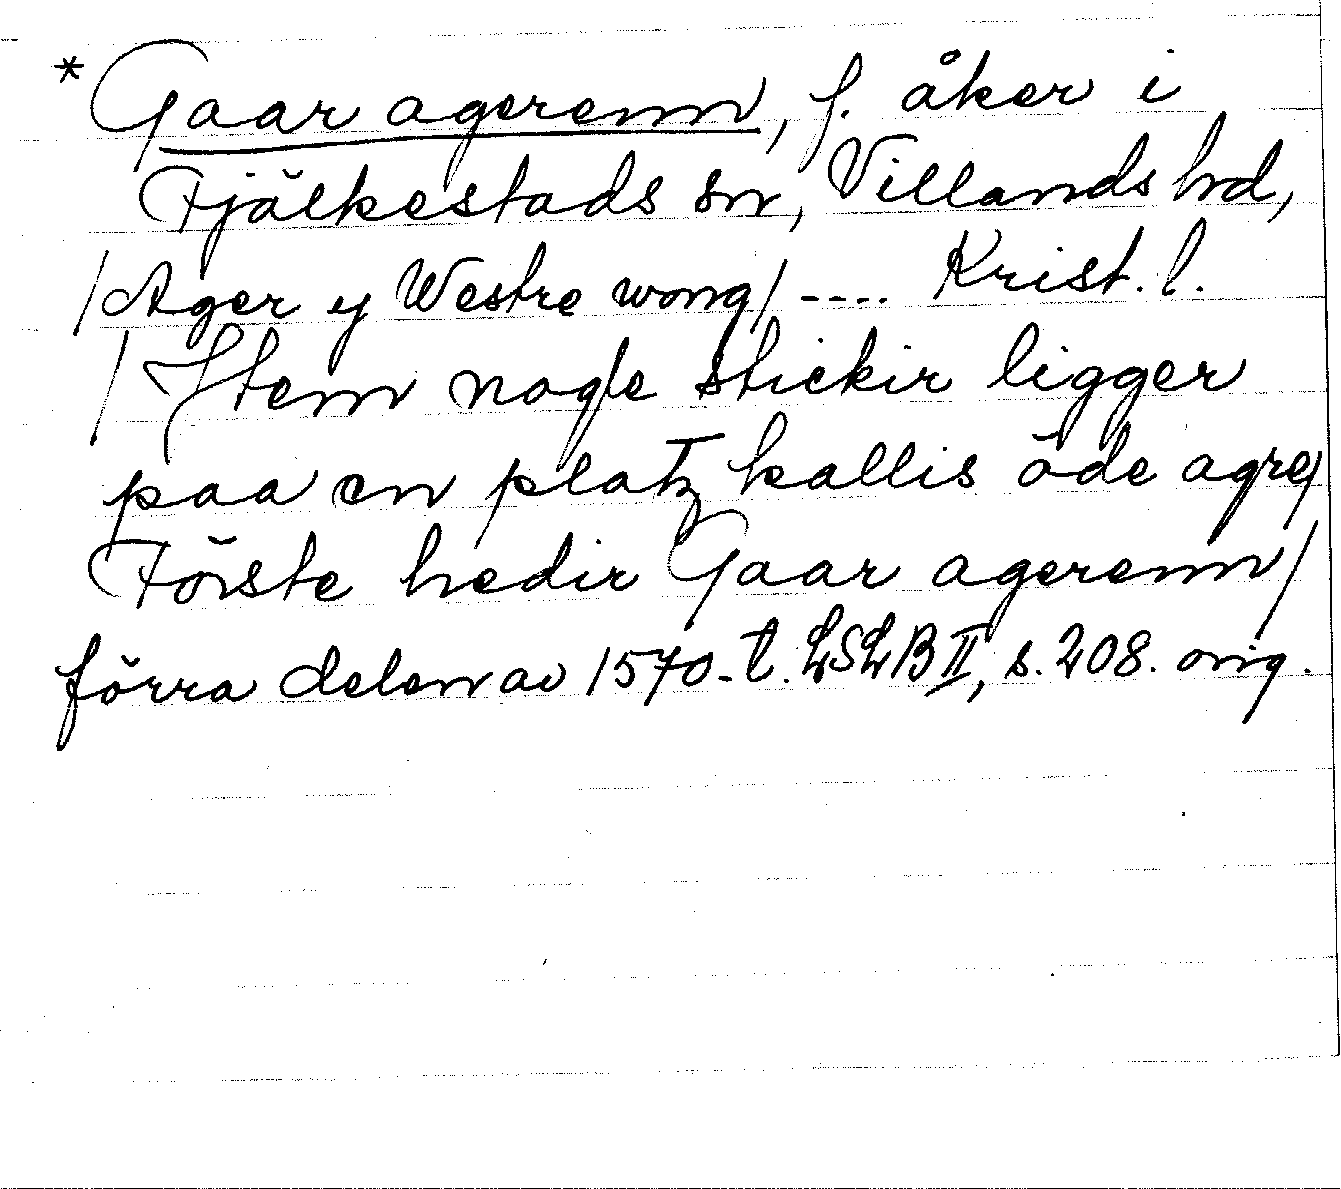 * Gaar agerenn, f. åker i
Fjälkestads sn, Villands hd,
/Ager y Westre wong/ ---- Krist. l.
/Item nogle stickir ligger
paa en platz kallis öde agre/
Förste hedir Gaar agerenn/
förra delen av 1570-t. LSLB II, s. 208. orig.